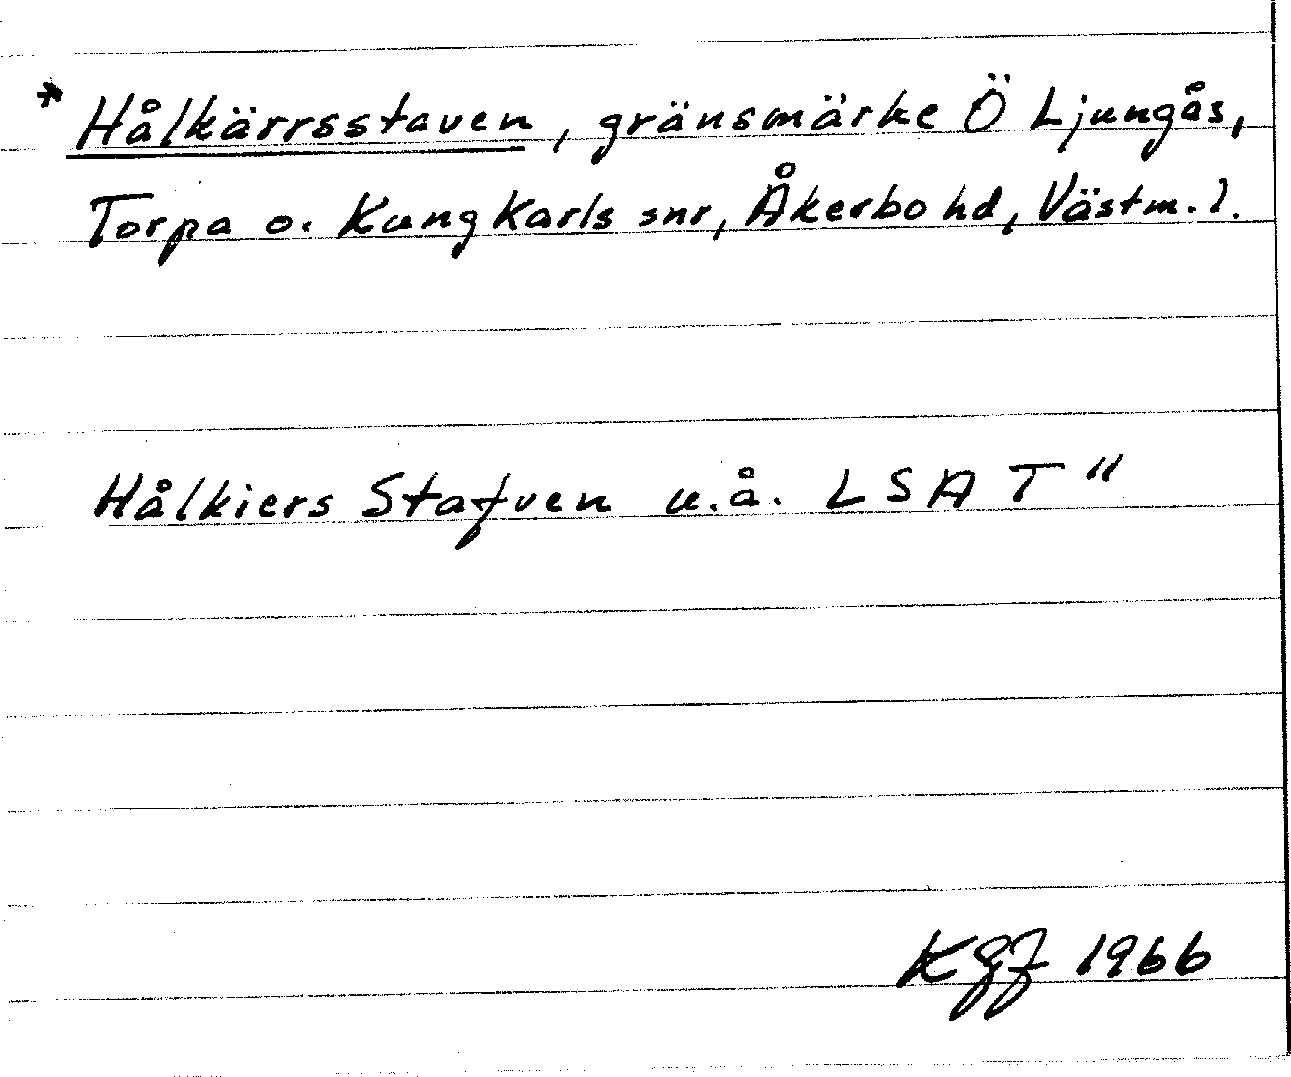 * Hålkärrsstaven, gränsmärke Ö Ljungås,
Torpa o. Kung Karls snr, Åkerbo hd, Västm. l.
Hålkiers Stafven u.å. LSA T"
Kgf 1966